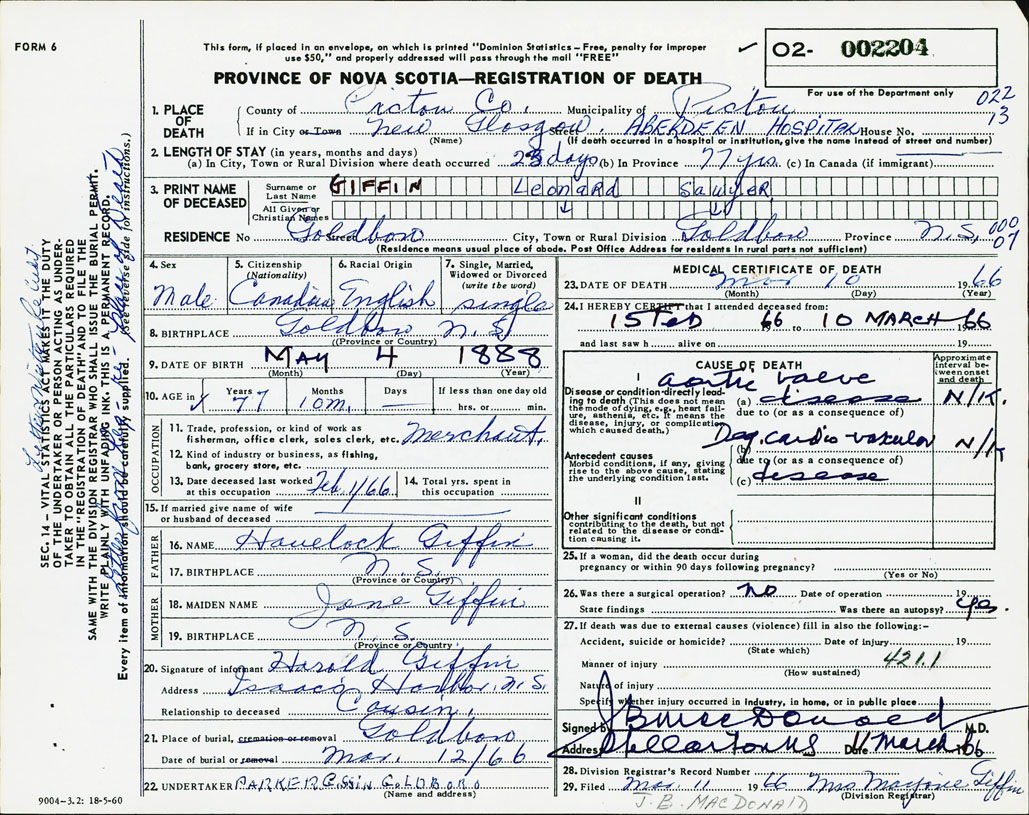 FORM 6
This form, if placed in an envelope, on which is printed "Dominion Statistics – Free, penalty for improper
use $50," and properly addressed will pass through the mail "FREE"
✓ 02- 002204
PROVINCE OF NOVA SCOTIA—REGISTRATION OF DEATH
For use of the Department only
022
13
1. PLACE OF DEATH
County of Pictou Co. Municipality of Pictou
If in City or Town New Glasgow Street ABERDEEN HOSPITAL House No.
(Name) (If death occurred in a hospital or institution, give the name instead of street and number)
2. LENGTH OF STAY (in years, months and days)
(a) In City, Town or Rural Division where death occurred 23 days (b) In Province 77 yrs. (c) In Canada (if immigrant)
3. PRINT NAME OF DECEASED
Surname or Last Name GIFFIN Leonard Sawyer
All Given or Christian Names
RESIDENCE No Goldboro Street City, Town or Rural Division Goldboro Province N.S. 000
07
(Residence means usual place of abode. Post Office Address for residents in rural parts not sufficient)
4. Sex Male
5. Citizenship (Nationality) Canadian
6. Racial Origin English
7. Single, Married, Widowed or Divorced (write the word) single
8. BIRTHPLACE Goldboro N.S.
(Province or Country)
9. DATE OF BIRTH MAY 4 1888
(Month) (Day) (Year)
10. AGE in Years 77 Months 10 m. Days — If less than one day old hrs. or min.
OCCUPATION
11. Trade, profession, or kind of work as
fisherman, office clerk, sales clerk, etc. Merchant.
12. Kind of industry or business, as fishing,
bank, grocery store, etc.
13. Date deceased last worked at this occupation Feb. 1/66
14. Total yrs. spent in this occupation
15. If married give name of wife
or husband of deceased
FATHER
16. NAME Havelock Giffin
17. BIRTHPLACE N.S.
(Province or Country)
MOTHER
18. MAIDEN NAME Jane Giffin
19. BIRTHPLACE N.S.
(Province or Country)
20. Signature of informant Harold Giffin
Address Isaac's Harbor, N.S.
Relationship to deceased Cousin.
21. Place of burial, cremation or removal Goldboro
Date of burial or removal Mar. 12/66
22. UNDERTAKER GOLDBORO
(Name and address)
MEDICAL CERTIFICATE OF DEATH
23. DATE OF DEATH Mar 10 1966
(Month) (Day) (Year)
24. I HEREBY CERTIFY that I attended deceased from:
15 FEB 66 to 10 MARCH 1966
and last saw h alive on 19
CAUSE OF DEATH
Approximate interval between onset and death
I
Disease or condition directly leading to death (This does not mean the mode of dying, e.g., heart failure, asthenia, etc. It means the disease, injury, or complication which caused death.)
aortic valve
(a) disease N/K.
due to (or as a consequence of)
Antecedent causes
Morbid conditions, if any, giving rise to the above cause, stating the underlying condition last.
Deg. cardio-vascular
(b) N/K
due to (or as a consequence of)
(c) disease
II
Other significant conditions
contributing to the death, but not related to the disease or condition causing it.
25. If a woman, did the death occur during
pregnancy or within 90 days following pregnancy?
(Yes or No)
26. Was there a surgical operation? no Date of operation 19
State findings Was there an autopsy? yes.
27. If death was due to external causes (violence) fill in also the following:-
Accident, suicide or homicide? Date of injury 19
(State which)
Manner of injury 421.1
(How sustained)
Nature of injury
Specify whether injury occurred in industry, in home, or in public place
Signed by JB MacDonald M.D.
Address Stellarton NS Date 11 March 1966
28. Division Registrar's Record Number
29. Filed Mar. 11 1966 Mrs Marjorie Giffin
(Division Registrar)
J. B. MACDONALD
9004–3.2: 18-5-60
SEC. 14 – VITAL STATISTICS ACT MAKES IT THE DUTY
OF THE UNDERTAKER OR PERSON ACTING AS UNDER-
TAKER TO OBTAIN ALL THE PARTICULARS REQUIRED
IN THE "REGISTRATION OF DEATH" AND TO FILE THE
SAME WITH THE DIVISION REGISTRAR WHO SHALL ISSUE THE BURIAL PERMIT.
WRITE PLAINLY WITH UNFADING INK. THIS IS A PERMANENT RECORD.
Every item of information should be carefully supplied. (See reverse side for instructions.)
Place of Death